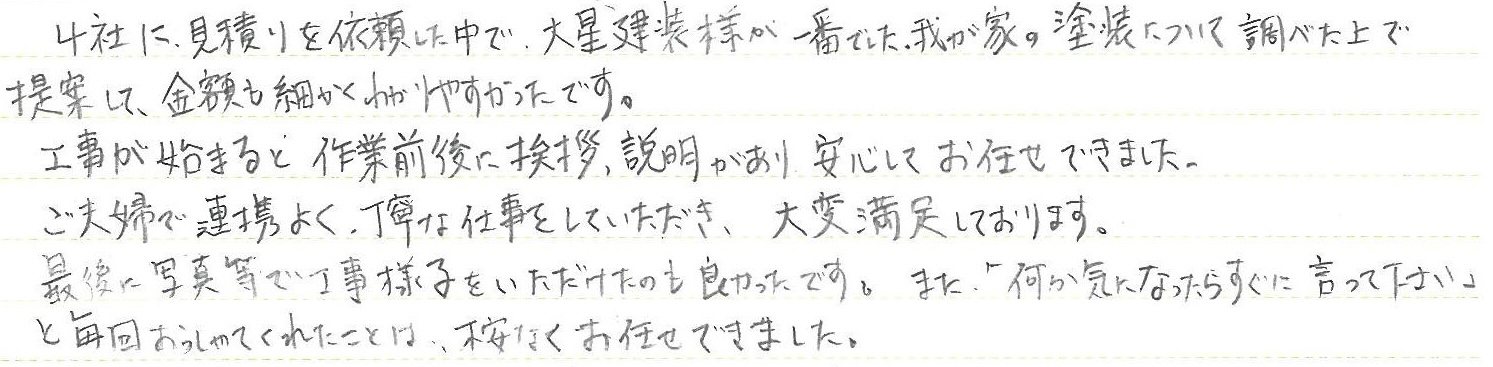 4社に、見積りを依頼した中で、大星建装様が一番でした。我が家の塗装について調べた上で
提案して、金額も細かくわかりやすかったです。
工事が始まると作業前後に挨拶、説明があり安心してお任せできました。
ご夫婦で連携よく、丁寧な仕事をしていただき、大変満足しております。
最後に写真等で工事様子をいただけたのも良かったです。また、「何か気になったらすぐに言って下さい」
と毎回おっしゃてくれたことは、不安なくお任せできました。